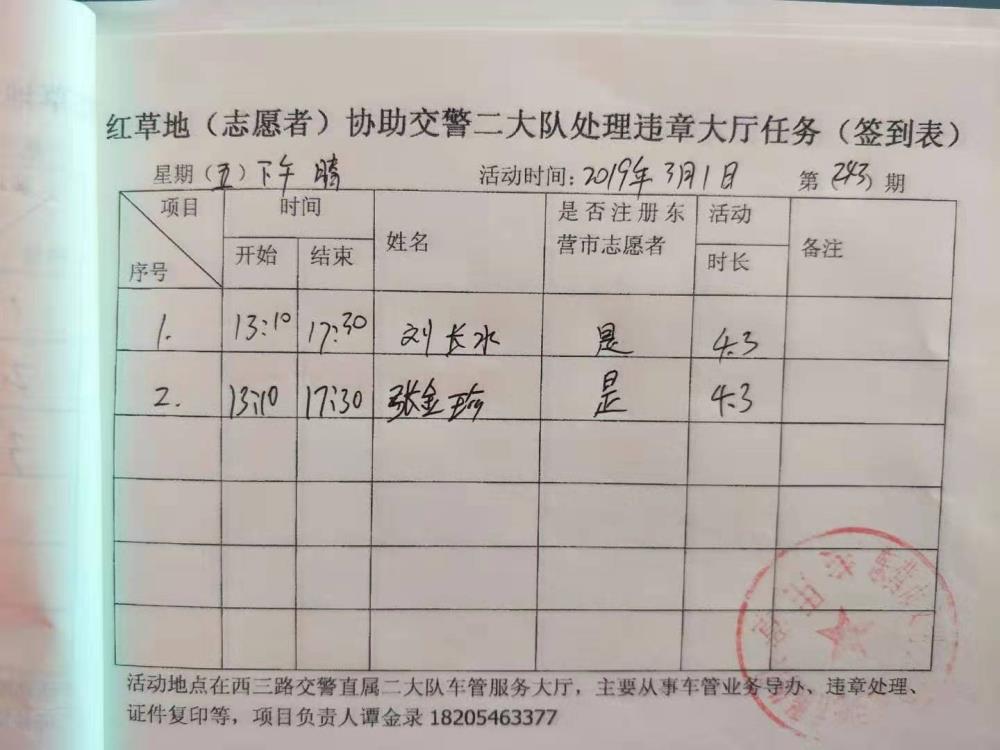 红草地（志愿者）协助交警二大队处理违章大厅任务（签到表）
星期（五）下午 晴 活动时间：2019年3月1日 第（243）期
项目 时间 姓名 是否注册东营市志愿者 活动时长 备注
序号 开始 结束
1. 13:10 17:30 刘长水 是 4.3
2. 13:10 17:30 张金 是 4.3
活动地点在西三路交警直属二大队车管服务大厅，主要从事车管业务导办、违章处理、
证件复印等，项目负责人谭金录 18205463377